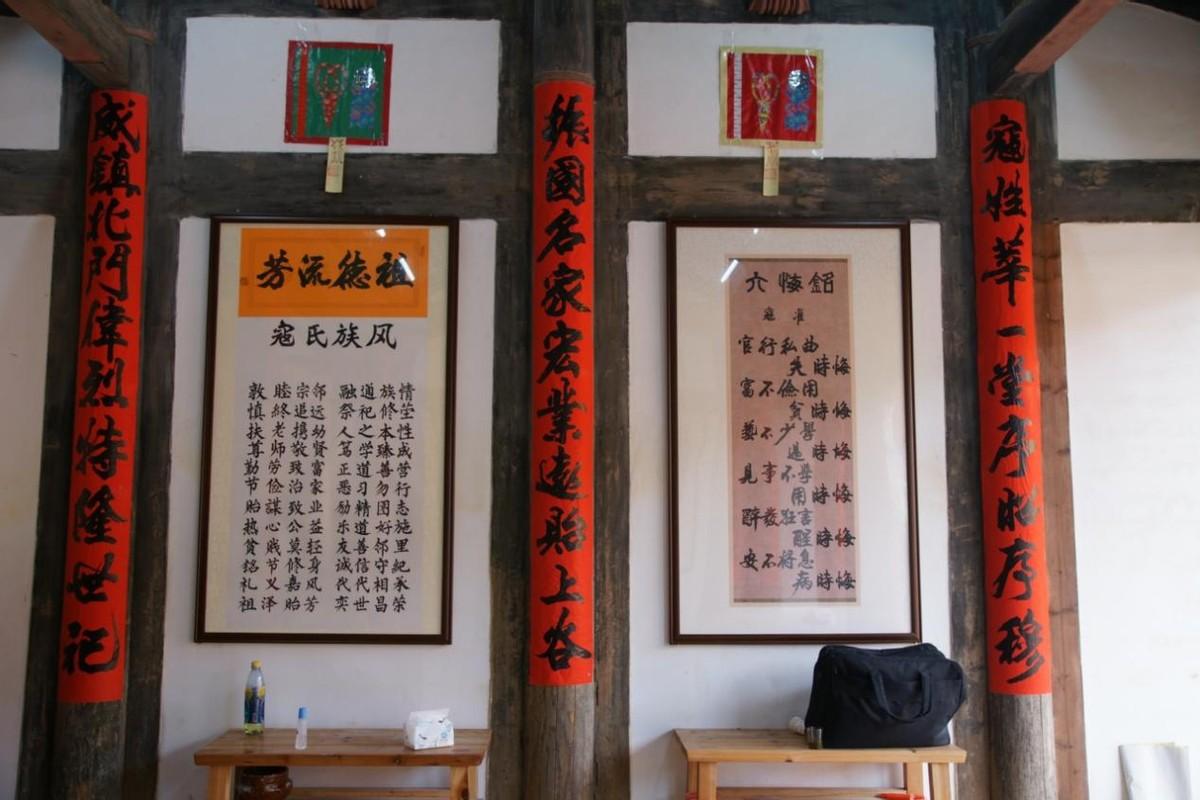 威鎮北門偉烈特隆世祀
祖德流芳
寇氏族风
敦睦宗邻 融通族情
慎終追远 祭祀修茔
扶老携幼 人之本性
尊师敬贤 笃学臻成
勤劳致富 正道善营
节俭治家 恶习勿行
胎謀致业 励精图志
热心公益 乐道好施
贫贱莫轻 友善邻里
銘节修身 诚信守紀
礼义嘉风 代代相承
祖泽胎芳 奕世昌荣
振國名家宏業遠貽上谷
六悔銘
寇准
官行私曲
失時悔
富不儉用
貧時悔
藝不少學
過時悔
見事不學
用時悔
醉發狂言
醒時悔
安不将息
病時悔
寇姓萃一堂序昭序穆